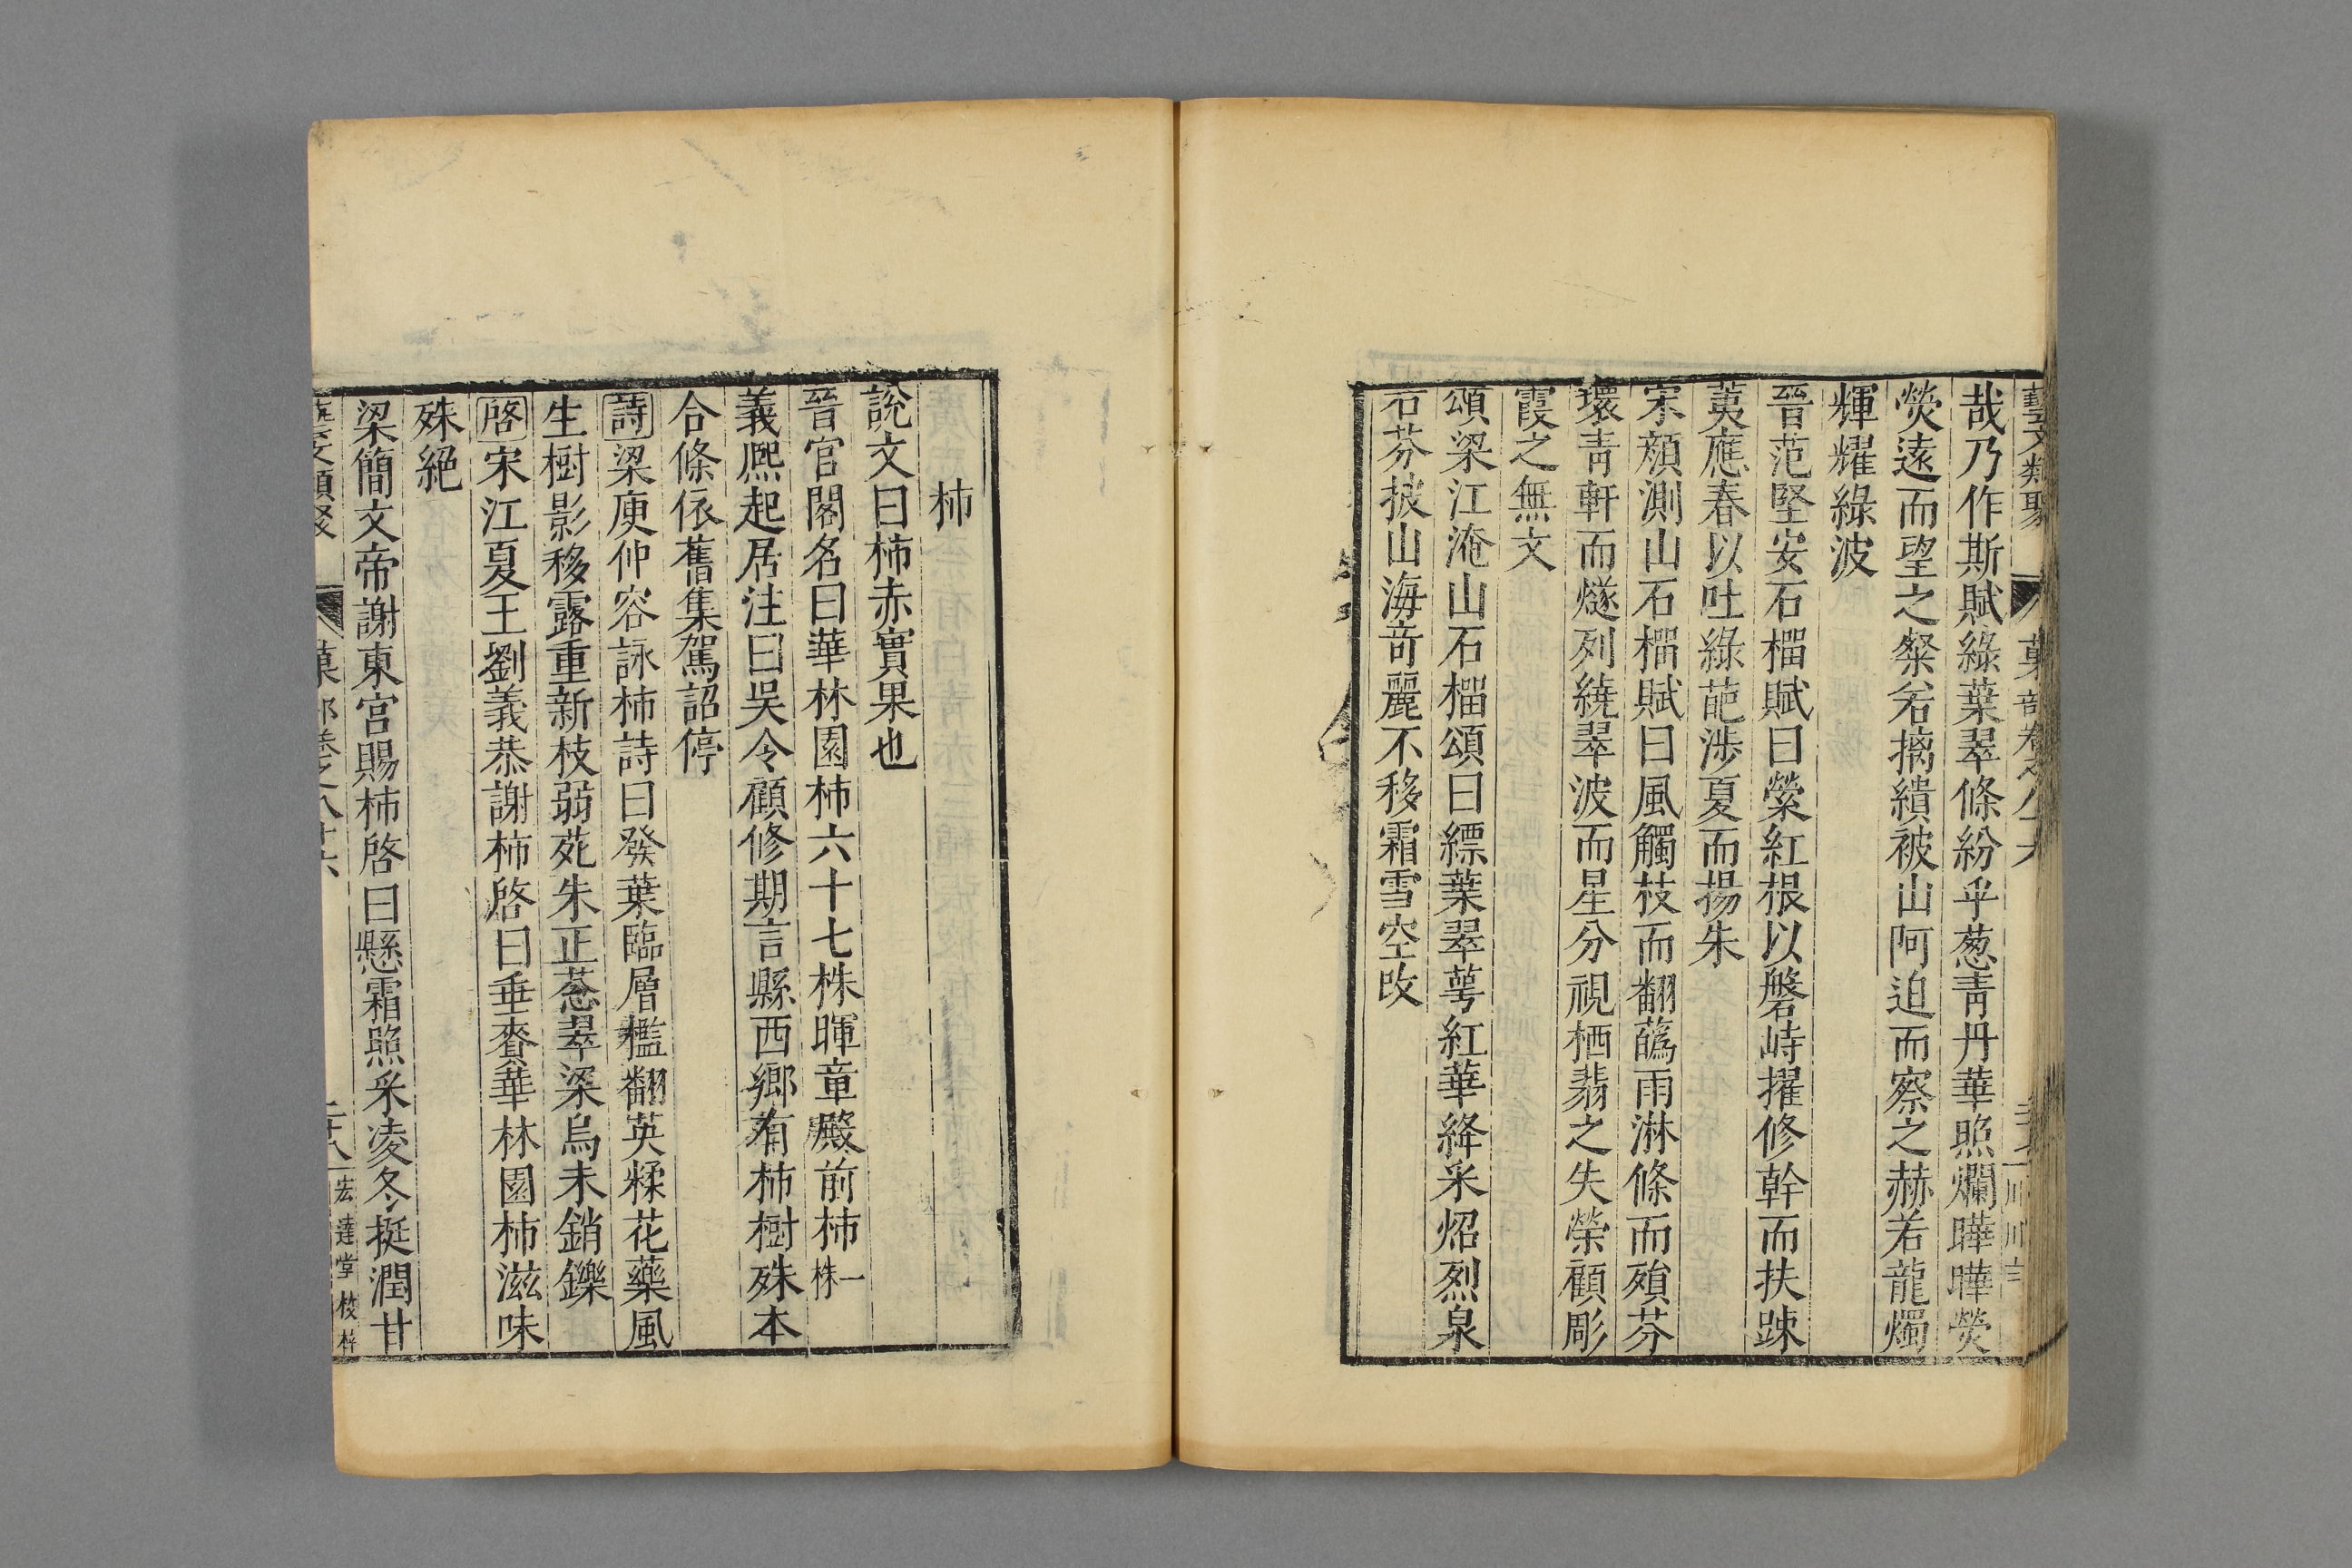 藝文類聚 菓部卷之八十六
哉乃作斯賦綠葉翠條紛乎葱青丹華照爛曄曄熒
熒遠而望之粲若摛繢被山阿迫而察之赫若龍燭
輝耀綠波
晉范堅安石榴賦曰縈紅根以磐峙擢修幹而扶踈
荑應春以吐綠葩渉夏而揚朱
宋顔測山石榴賦曰風觸枝而翻蘤雨淋條而殞芬
環青軒而燧列繞翠波而星分視栖翡之失榮顧彫
霞之無文
頌梁江淹山石榴頌曰縹葉翠萼紅華絳采炤烈泉
石芬披山海竒麗不移霜雪空改
柿
說文曰柿赤實果也
晉宫閣名曰華林園柿六十七株暉章殿前柿一株
義熙起居注曰吳令顧修期言縣西鄉有柿樹殊本
合條依舊集駕詔停
詩梁庾仲容詠柿詩曰發葉臨層檻翻英糅花藥風
生樹影移露重新枝弱苑朱正葱翠梁烏未銷鑠
啓宋江夏王劉義恭謝柿啓曰垂賚華林園柿滋味
殊絕
梁簡文帝謝東宫賜柿啓曰懸霜照采凌冬挺潤甘
藝文類聚 菓部卷之八十六 二十八 宏達堂校梓